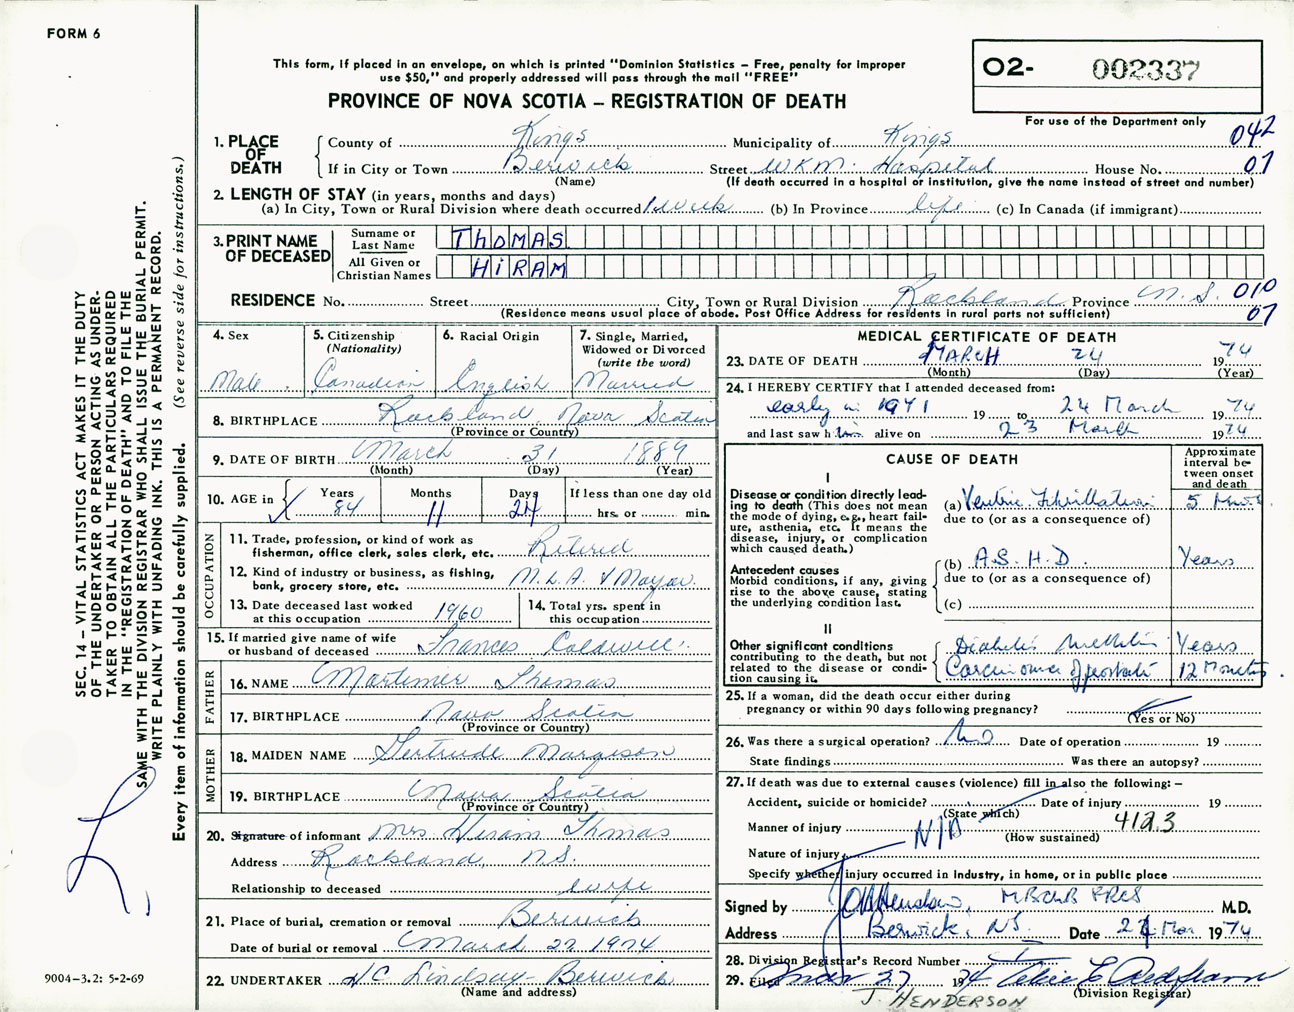 FORM 6
This form, if placed in an envelope, on which is printed "Dominion Statistics – Free, penalty for improper
use $50," and properly addressed will pass through the mail "FREE"
PROVINCE OF NOVA SCOTIA – REGISTRATION OF DEATH
O2- 002337
For use of the Department only
1. PLACE OF DEATH
County of Kings Municipality of Kings 042
If in City or Town Berwick Street WKM Hospital House No. 07
(Name) (If death occurred in a hospital or institution, give the name instead of street and number)
2. LENGTH OF STAY (in years, months and days)
(a) In City, Town or Rural Division where death occurred 1 week (b) In Province life (c) In Canada (if immigrant)
3. PRINT NAME OF DECEASED
Surname or Last Name THOMAS
All Given or Christian Names HIRAM
RESIDENCE No. Street City, Town or Rural Division Rockland Province N.S. 010
(Residence means usual place of abode. Post Office Address for residents in rural parts not sufficient) 07
4. Sex
Male
5. Citizenship
(Nationality)
Canadian
6. Racial Origin
English
7. Single, Married,
Widowed or Divorced
(write the word)
Married
8. BIRTHPLACE Rockland, Nova Scotia
(Province or Country)
9. DATE OF BIRTH March 31 1889
(Month) (Day) (Year)
10. AGE in Years 84 Months 11 Days 24 If less than one day old
hrs. or min.
OCCUPATION
11. Trade, profession, or kind of work as
fisherman, office clerk, sales clerk, etc. Retired
12. Kind of industry or business, as fishing,
bank, grocery store, etc. M.L.A. & Mayor
13. Date deceased last worked
at this occupation 1960
14. Total yrs. spent in
this occupation
15. If married give name of wife
or husband of deceased Frances Coldwell
FATHER
16. NAME Mortimer Thomas
17. BIRTHPLACE Nova Scotia
(Province or Country)
MOTHER
18. MAIDEN NAME Gertrude Margeson
19. BIRTHPLACE Nova Scotia
(Province or Country)
20. Signature of informant Mrs Hiram Thomas
Address Rockland, N.S.
Relationship to deceased wife
21. Place of burial, cremation or removal Berwick
Date of burial or removal March 27 1974
22. UNDERTAKER H C Lindsay – Berwick
(Name and address)
MEDICAL CERTIFICATE OF DEATH
23. DATE OF DEATH MARCH 24 1974
(Month) (Day) (Year)
24. I HEREBY CERTIFY that I attended deceased from:
early in 1971 19 to 24 March 1974
and last saw him alive on 23 March 1974
CAUSE OF DEATH
Approximate
interval be-
tween onset
and death
I
Disease or condition directly lead-
ing to death (This does not
mean the mode of dying, e.g., heart fail-
ure, asthenia, etc. It means the
disease, injury, or complication
which caused death.)
(a) Ventric Fibrillation 5 Mins
due to (or as a consequence of)
Antecedent causes
Morbid conditions, if any, giving
rise to the above cause, stating
the underlying condition last.
(b) A.S.H.D. Years
due to (or as a consequence of)
(c)
II
Other significant conditions
contributing to the death, but not
related to the disease or condi-
tion causing it.
Diabetes Mellitus Years
Carcinoma of prostate 12 Months
25. If a woman, did the death occur either during
pregnancy or within 90 days following pregnancy?
(Yes or No)
26. Was there a surgical operation? No Date of operation 19
State findings Was there an autopsy?
27. If death was due to external causes (violence) fill in also the following: –
Accident, suicide or homicide? Date of injury 19
(State which)
Manner of injury N/A 412.3
(How sustained)
Nature of injury
Specify whether injury occurred in industry, in home, or in public place
Signed by M.D.
Address Berwick, NS. Date Mar 1974
28. Division Registrar's Record Number
29. Filed Mar 27 1974
(Division Registrar)
J. HENDERSON
SEC. 14 – VITAL STATISTICS ACT MAKES IT THE DUTY
OF THE UNDERTAKER OR PERSON ACTING AS UNDER-
TAKER TO OBTAIN ALL THE PARTICULARS REQUIRED
IN THE "REGISTRATION OF DEATH" AND TO FILE THE
SAME WITH THE DIVISION REGISTRAR WHO SHALL ISSUE THE BURIAL PERMIT.
WRITE PLAINLY WITH UNFADING INK. THIS IS A PERMANENT RECORD.
Every item of information should be carefully supplied. (See reverse side for instructions.)
9004-3.2: 5-2-69